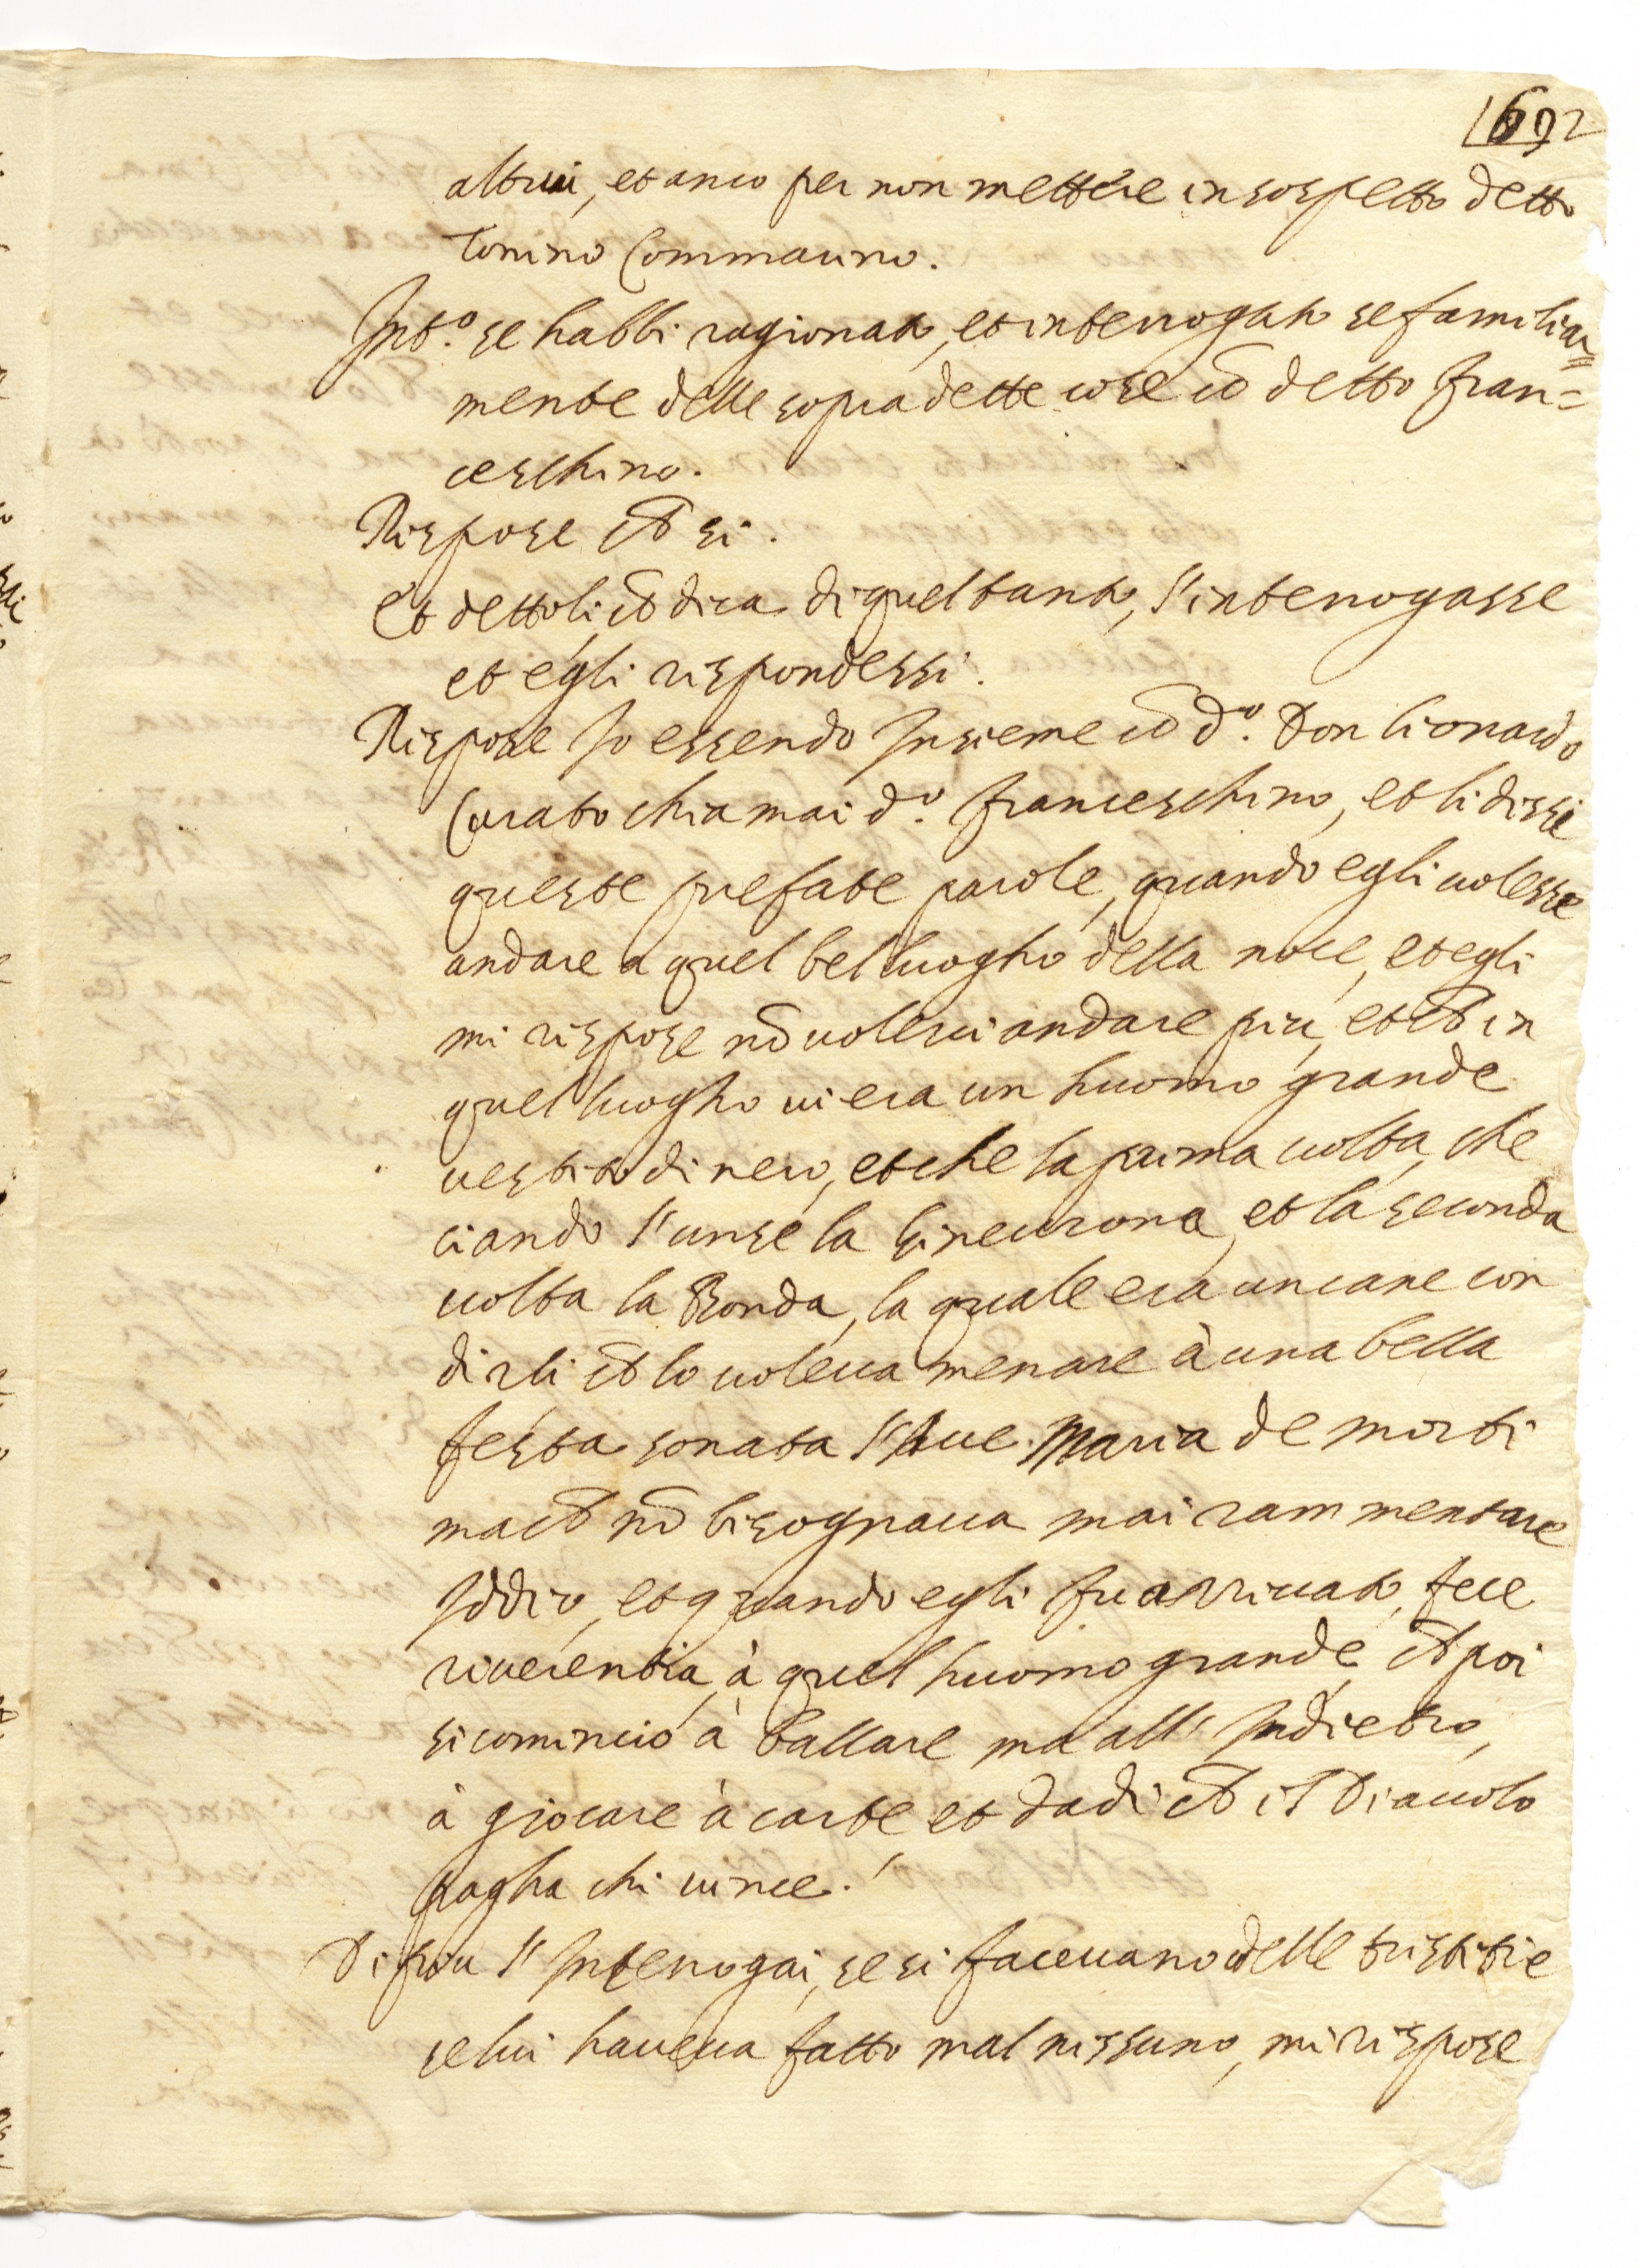 692
altrui, et anco per non mettere in sospetto detto
Tonino Commauno.
Int.º se habbi ragionato, et interrogato se familiar=
mente delle sopradette cose cō detto Fran=
ceschino.
Rispose ch̄ si.
Et dettoli, ch̄ dica di quel tanto, l'interrogasse
et egli rispondessi.
Rispose Io essendo Insieme cō d.º Don Lionardo
Curato chiamai d.º Franceschino, et li dissi
queste prefate parole, quando egli volesse
andare a quel bel luogho della noce, et egli
mi rispose nō volerui andare più, et ch̄ in
quel luogho ui era un huomo grande
uestito di nero, et che la prima uolta, che
ci andò l'unse la et la seconda
uolta la Bionda, la quale era un cane con
dirli ch̄ lo uoleua menare à una bella
festa sonata l'Aue Maria de morti
ma ch̄ nō bisognaua mai rammentare
Iddio, et quando egli fu arriuato, fece
riuerentia à quel huomo grande, ch̄ poi
si cominciò à ballare ma all' Indietro,
à giocare à carte, et dadi ch̄ il Diauolo
pagha chi uince.
Di più l'Interrogai, se si faceuano delle tristitie
se lui haueua fatto mal nissuno, mi rispose